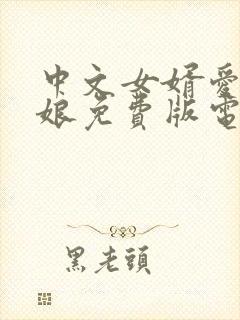 中文女婿爱
娘免費版電
黑老頭